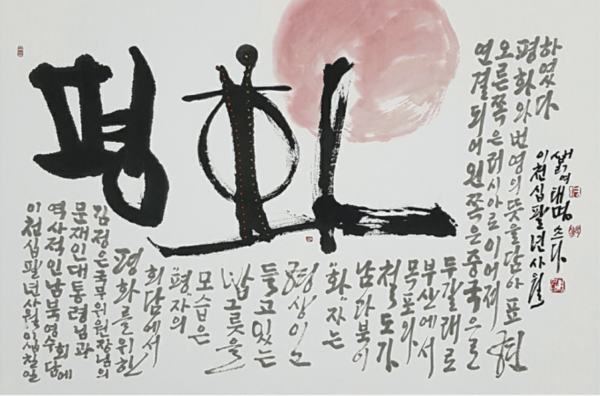 평화
이천십팔년사월이십칠일
역사적인남북영수회담에
문재인대통령님과
김정은국무위원장님의
평화를위한
회담에서
'평'자의
모습은
밥그릇을
들고있는
형상이고
'화'자는
남과북이
철도가
목포와
부산에서
두갈래로
연결되어왼쪽은중국으로
오른쪽은러시아로이어져
평화와번영의뜻을담아표현
하였다
이천십팔년사월
여태명쓰다